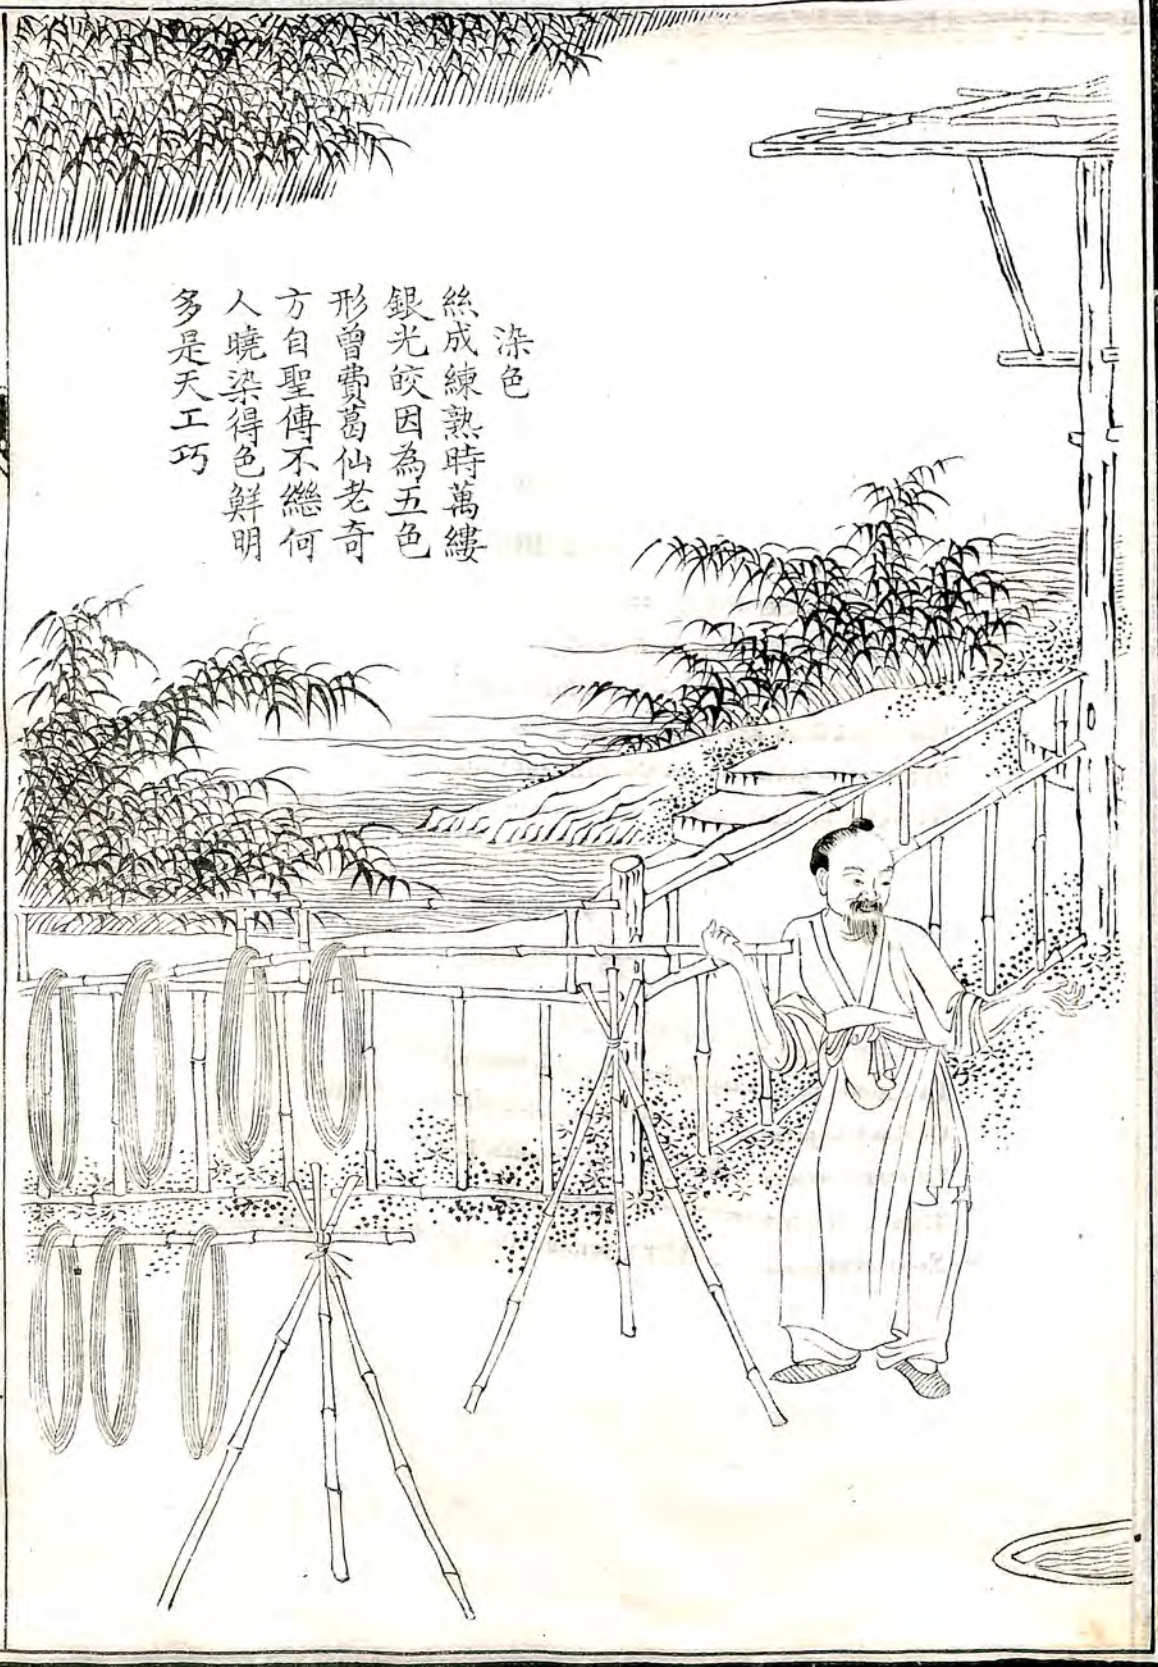 染色
絲成練熟時萬縷
銀光皎因為五色
形曾費葛仙老奇
方自聖傳不繼何
人曉染得色鮮明
多是天工巧